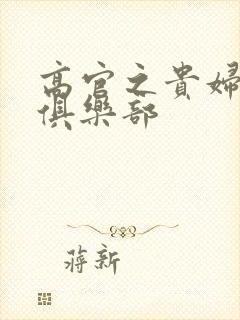 高官之貴婦
俱樂部
蔣新